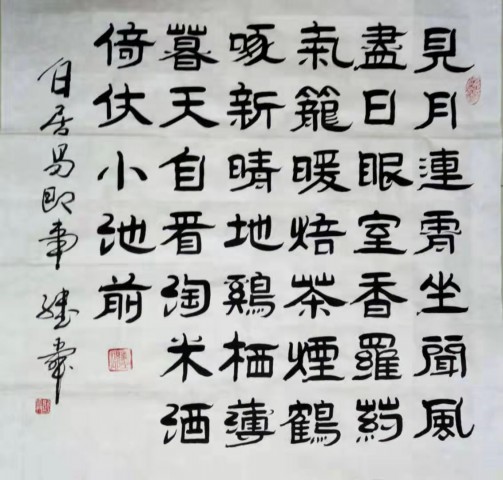 見月連霄坐聞風
盡日眠室香羅葯
氣籠暖焙茶煙鶴
啄新晴地鷄栖薄
暮天自看淘米酒
倚仗小池前
白居易即事